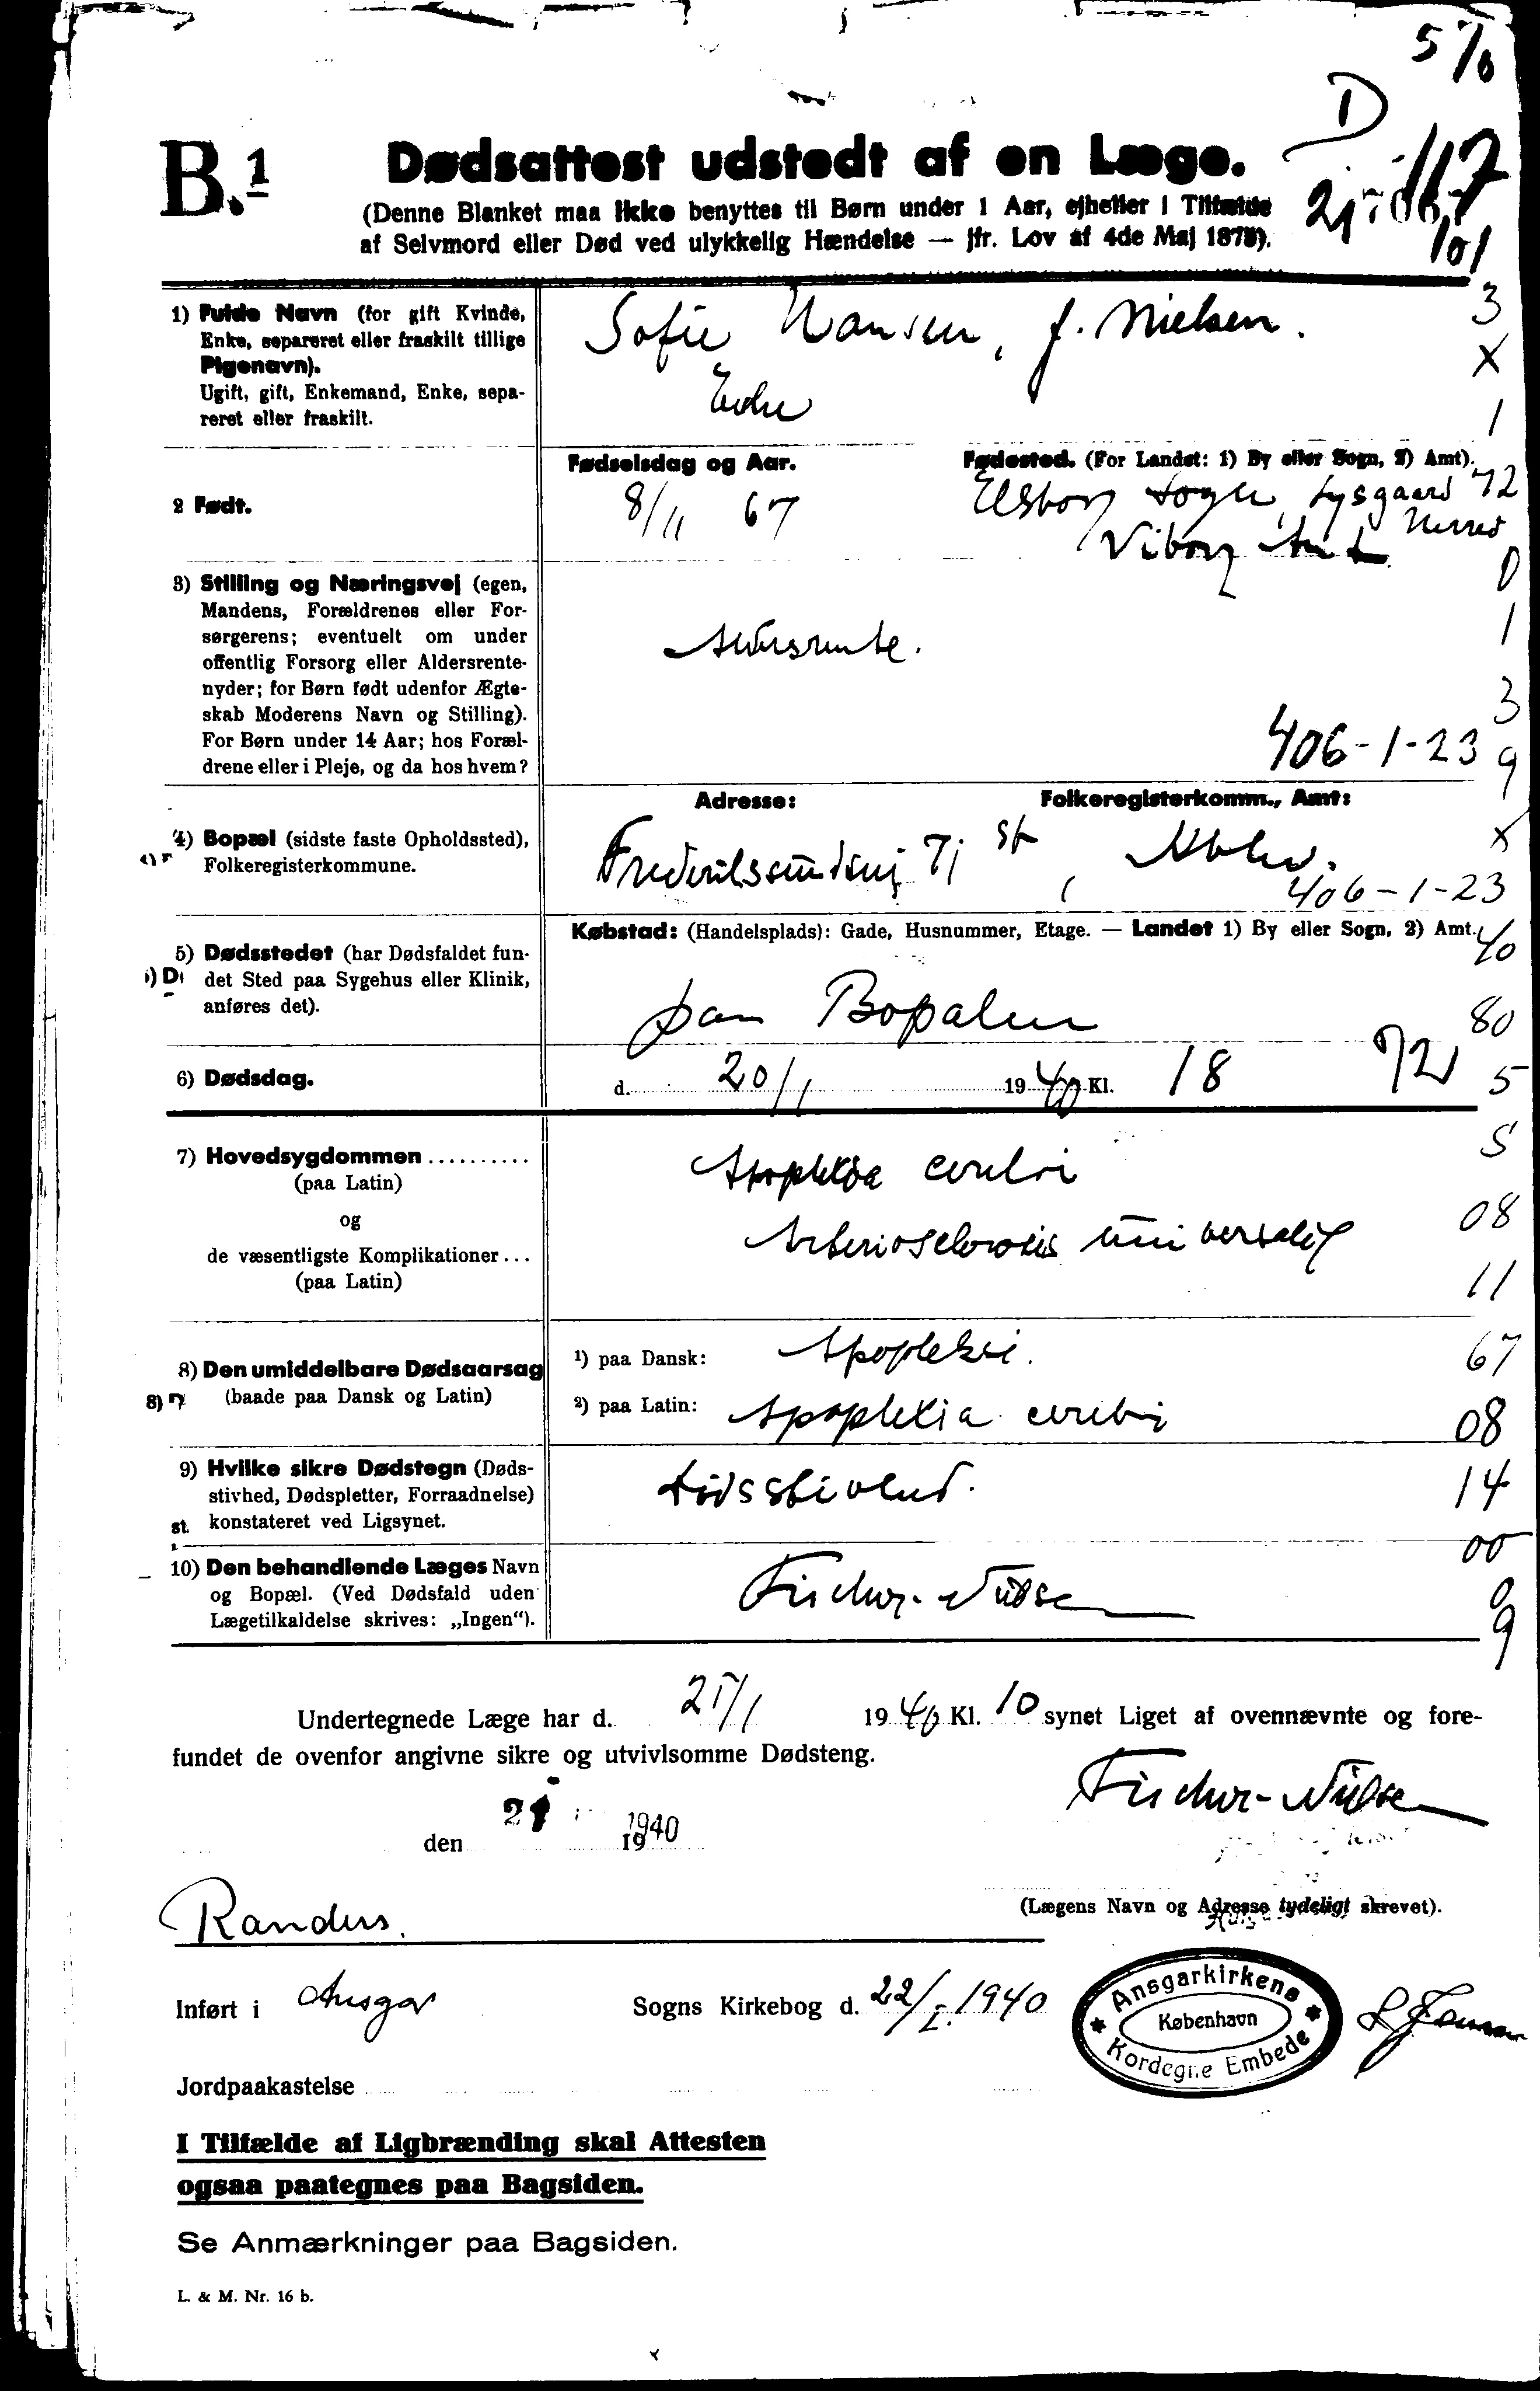 5 7/8
D
B.1
Dødsattest udstedt af en Læge.
117
(Denne Blanket maa ikke benyttes til Børn under 1 Aar, ejheller i Tilfælde
af Selvmord eller Død ved ulykkelig Hændelse — jfr. Lov af 4de Maj 1875).
101
1) Fulde Navn (for gift Kvinde,
Enke, separeret eller fraskilt tillige
Pigenavn).
Ugift, gift, Enkemand, Enke, sepa-
reret eller fraskilt.
Sofie Hansen, f. Nielsen.
Enke
3
X
1
Fødselsdag og Aar.
Fødested. (For Landet: 1) By eller Sogn, 2) Amt).
2 Født.
8/11 67
Elsborg Sogn, Lysgaard
Herred
Viborg Amt
72
0
3) Stilling og Næringsvej (egen,
Mandens, Forældrenes eller For-
sørgerens; eventuelt om under
offentlig Forsorg eller Aldersrente-
nyder; for Børn født udenfor Ægte-
skab Moderens Navn og Stilling).
For Børn under 14 Aar; hos Foræl-
drene eller i Pleje, og da hos hvem?
Aldersrente.
1
3
406-1-23
9
Adresse:
Folkeregisterkomm., Amt:
4) Bopæl (sidste faste Opholdssted),
Folkeregisterkommune.
Frederikssundsvej 71 st, Kbhvn.
X
406-1-23
Købstad: (Handelsplads): Gade, Husnummer, Etage. — Landet 1) By eller Sogn, 2) Amt.
40
5) Dødsstedet (har Dødsfaldet fun-
det Sted paa Sygehus eller Klinik,
anføres det).
paa Bopælen
80
6) Dødsdag.
d. 20/1 1940 Kl. 18
72
5
7) Hovedsygdommen ..........
(paa Latin)
og
de væsentligste Komplikationer ...
(paa Latin)
Apoplexia cerebri
Arteriosclerosis universalis
S
08
11
8) Den umiddelbare Dødsaarsag
(baade paa Dansk og Latin)
1) paa Dansk: Apopleksi.
67
2) paa Latin: Apoplexia cerebri
08
9) Hvilke sikre Dødstegn (Døds-
stivhed, Dødspletter, Forraadnelse)
konstateret ved Ligsynet.
Dødsstivhed.
14
00
10) Den behandlende Læges Navn
og Bopæl. (Ved Dødsfald uden
Lægetilkaldelse skrives: „Ingen“).
Fischer-Nielsen
0
9
Undertegnede Læge har d. 21/1 1940 Kl. 10 synet Liget af ovennævnte og fore-
fundet de ovenfor angivne sikre og utvivlsomme Dødsteng.
Fischer-Nielsen
den 21 1940
19
(Lægens Navn og Adresse tydeligt skrevet).
Randers.
Indført i Ansgar Sogns Kirkebog d. 22/1. 1940
Ansgarkirkens
København
Kordegne Embede
Jordpaakastelse
I Tilfælde af Ligbrænding skal Attesten
ogsaa paategnes paa Bagsiden.
Se Anmærkninger paa Bagsiden.
L. & M. Nr. 16 b.